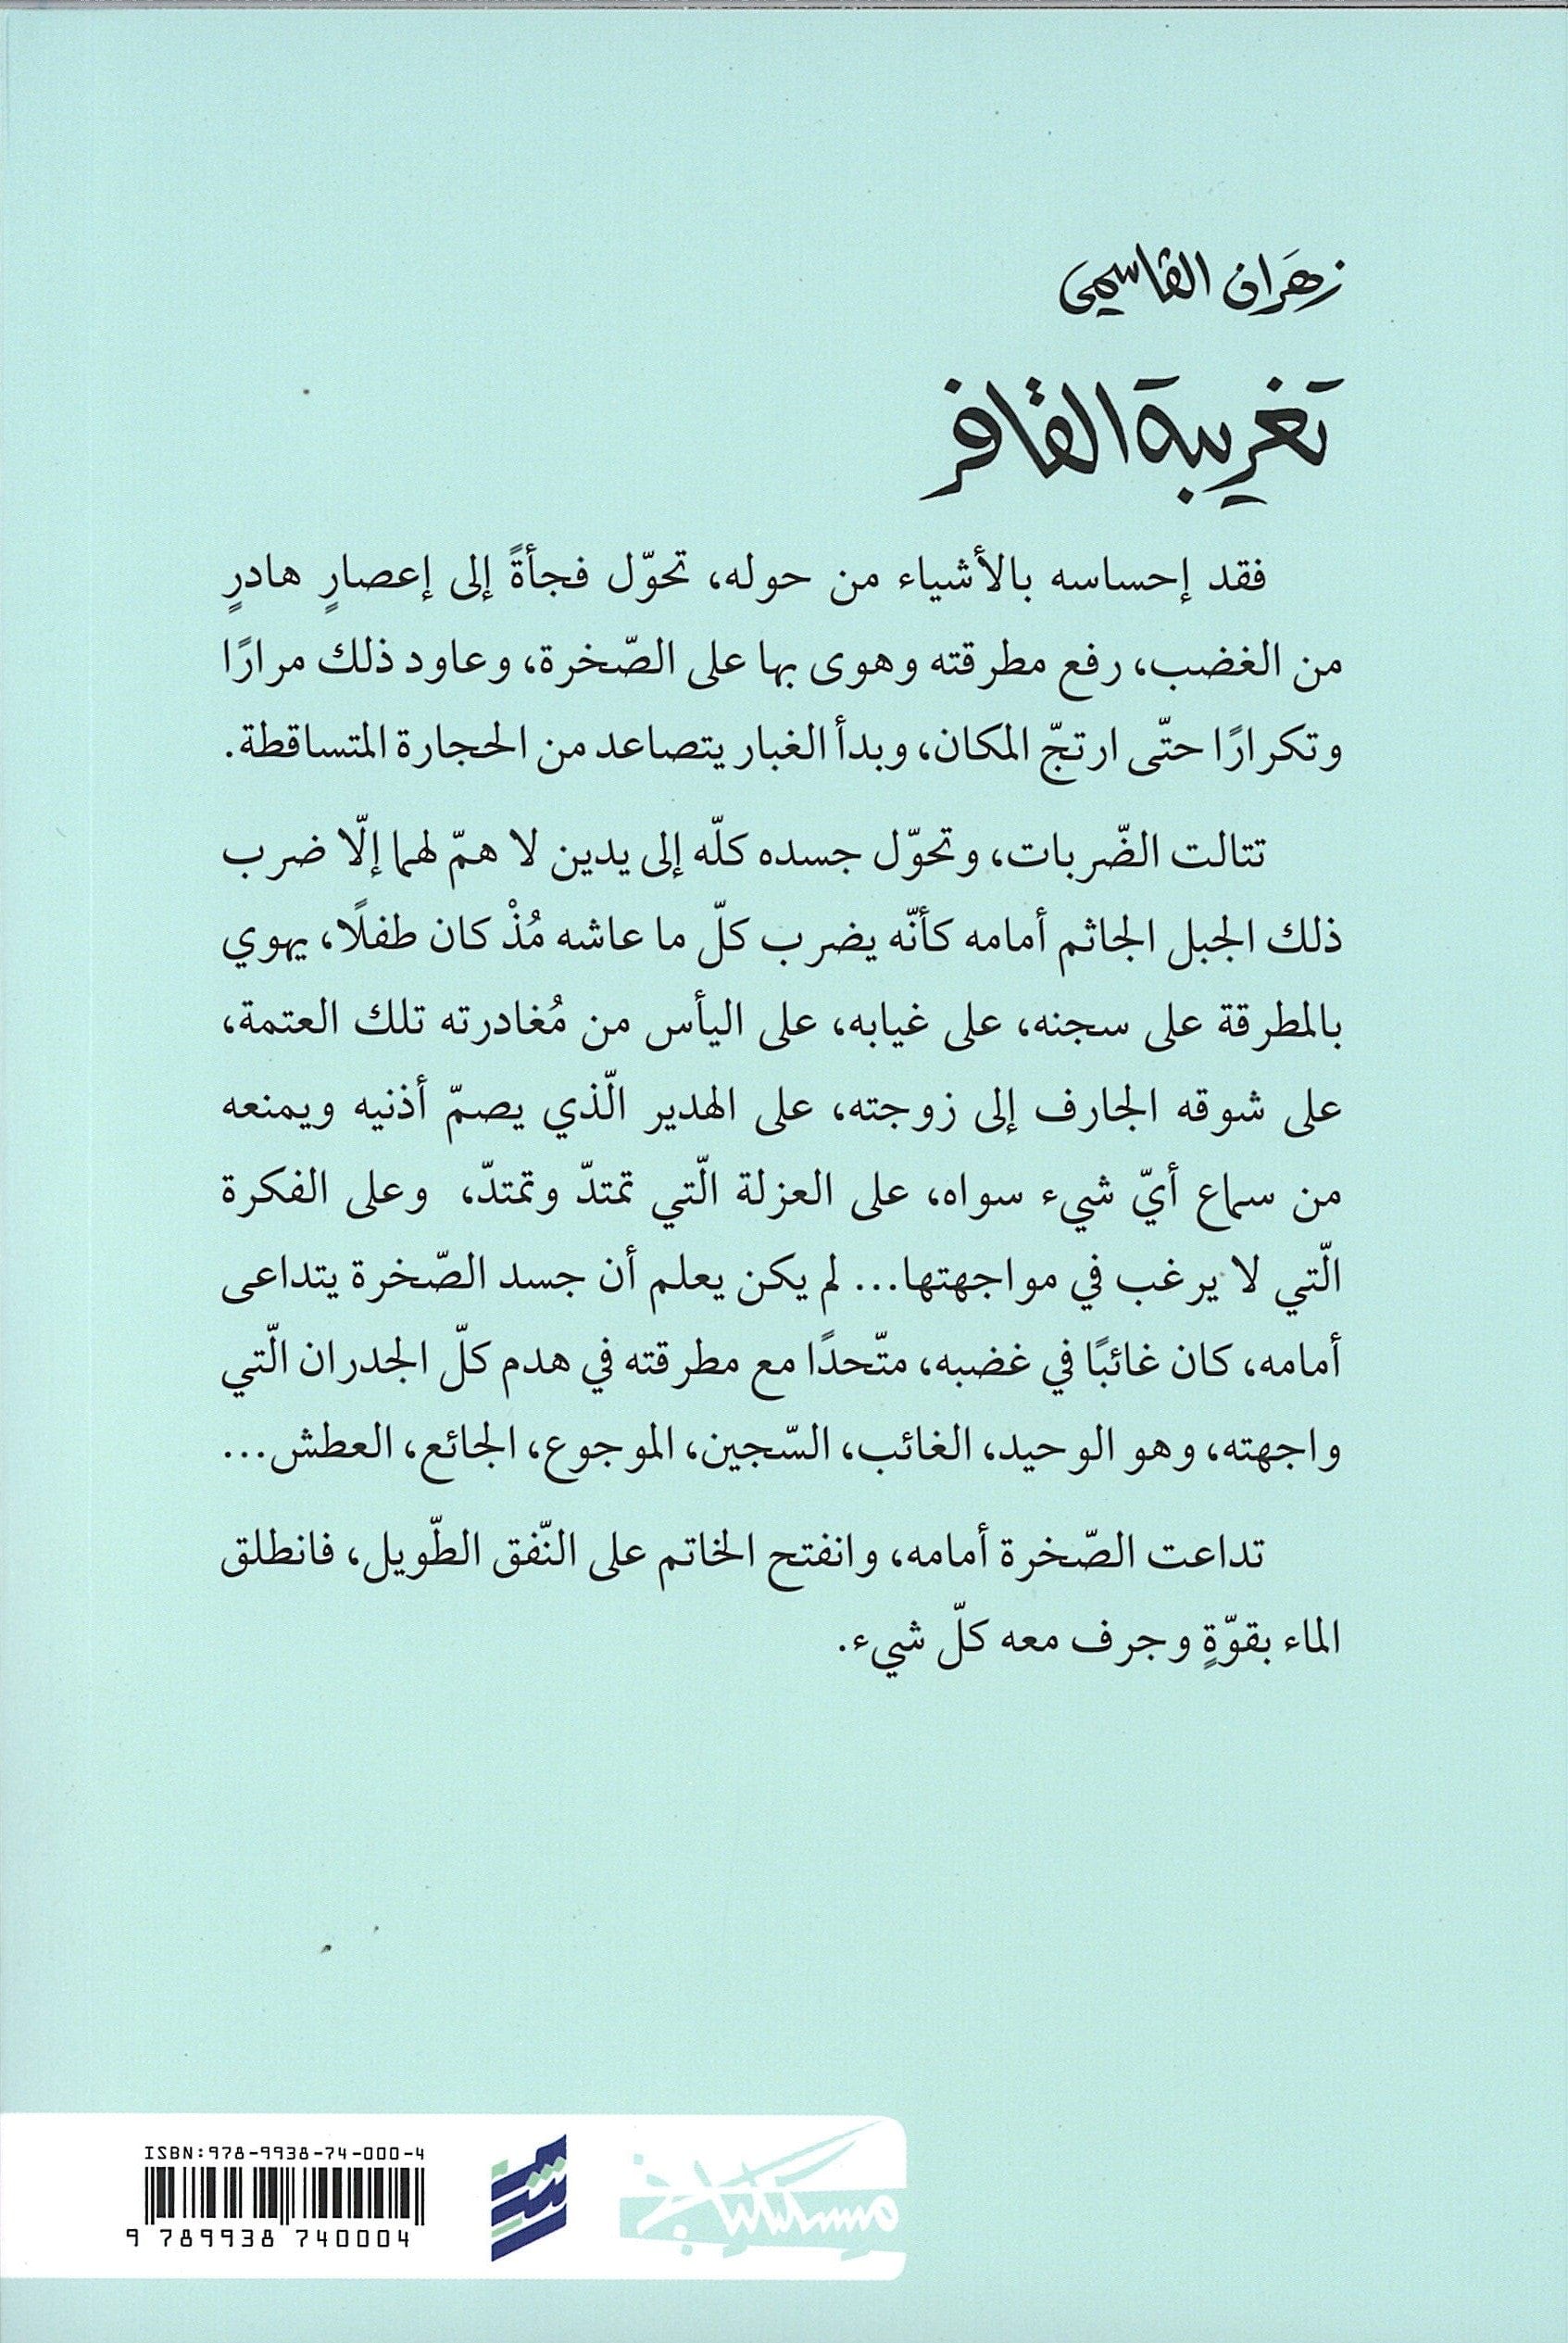 زهَران القاسمي
تغريبة القافر
فقد إحساسه بالأشياء من حوله، تحوّل فجأةً إلى إعصارٍ هادرٍ
من الغضب، رفع مطرقته وهوى بها على الصّخرة، وعاود ذلك مرارًا
وتكرارًا حتّى ارتجّ المكان، وبدأ الغبار يتصاعد من الحجارة المتساقطة.
تتالت الضّربات، وتحوّل جسده كلّه إلى يدين لا همّ لهما إلّا ضرب
ذلك الجبل الجاثم أمامه كأنّه يضرب كلّ ما عاشه مُذْ كان طفلًا، يهوي
بالمطرقة على سجنه، على غيابه، على اليأس من مُغادرته تلك العتمة،
على شوقه الجارف إلى زوجته، على الهدير الّذي يصمّ أذنيه ويمنعه
من سماع أيّ شيء سواه، على العزلة الّتي تمتدّ وتمتدّ، وعلى الفكرة
الّتي لا يرغب في مواجهتها... لم يكن يعلم أن جسد الصّخرة يتداعى
أمامه، كان غائبًا في غضبه، متّحدًا مع مطرقته في هدم كلّ الجدران الّتي
واجهته، وهو الوحيد، الغائب، السّجين، الموجوع، الجائع، العطش...
تداعت الصّخرة أمامه، وانفتح الخاتم على النّفق الطّويل، فانطلق
الماء بقوّةٍ وجرف معه كلّ شيء.
ISBN:978-9938-74-000-4
9 789938 740004
مسكيلياني